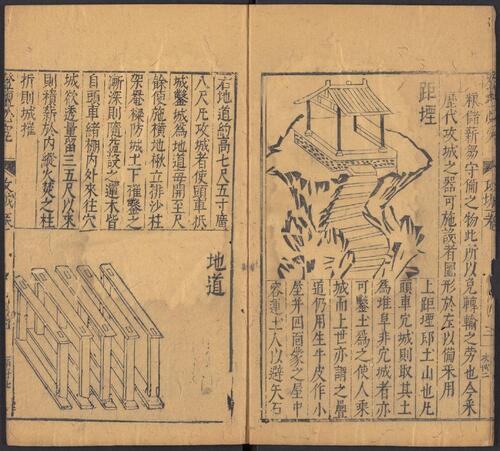 糧儲薪芻守備之物此所以免轉輸之勞也今采
歷代攻城之器可施設者圖形於左以備采用
距堙
上距堙邱土山也凡
頭車宂城則取其土
為堆阜非宂城者亦
可鑿土為之使人乘
城而上世亦謂之疊
道仍用生牛皮作小
屋并四面蒙之屋中
容運土人以避矢石
右地道約高七尺五寸廣
八尺凡攻城者使頭車抵
城鑿城為地道每開至尺
餘便施橫地栿立排沙柱
架罨梁防城土下摧鑿之
漸深則隨後設之運木皆
自頭車緒棚內外來往穴
城欲透量留三五尺以來
則積薪於內縱火焚之柱
折則城摧
地道
登壇必究
攻城 卷